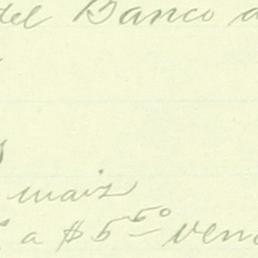 del Banco d
maiz
a $5.50 ven